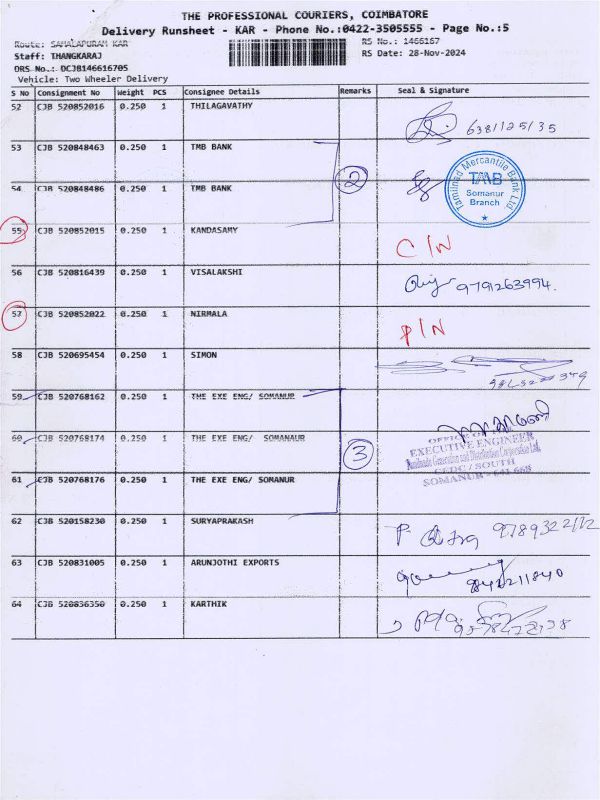 THE PROFESSIONAL COURIERS, COIMBATORE
Delivery Runsheet - KAR - Phone No.:0422-3505555 - Page No.:5
Route: SAMALAPURAM KAR
RS No.: 1466167
Staff: THANGKARAJ
RS Date: 28-Nov-2024
DRS No.: DCJB146616705
Vehicle: Two Wheeler Delivery
S No Consignment No Weight PCS Consignee Details Remarks Seal & Signature
52 CJB 520852016 0.250 1 THILAGAVATHY
6381125135
53 CJB 520848463 0.250 1 TMB BANK
2
Tamilnad Mercantile Bank Ltd
TMB
Somanur
Branch
54 CJB 520848486 0.250 1 TMB BANK
55 CJB 520852015 0.250 1 KANDASAMY
C/N
56 CJB 520816439 0.250 1 VISALAKSHI
9791263994.
57 CJB 520852022 0.250 1 NIRMALA
P/N
58 CJB 520695454 0.250 1 SIMON
59 CJB 520768162 0.250 1 THE EXE ENG/ SOMANUR
60 CJB 520768174 0.250 1 THE EXE ENG/ SOMANAUR
3
OFFICE OF THE
EXECUTIVE ENGINEER
Tamilnadu Generation and Distribution Corporation Ltd.
CEDC / SOUTH
SOMANUR - 641 668
61 CJB 520768176 0.250 1 THE EXE ENG/ SOMANUR
62 CJB 520158230 0.250 1 SURYAPRAKASH
63 CJB 520831005 0.250 1 ARUNJOTHI EXPORTS
64 CJB 520836350 0.250 1 KARTHIK